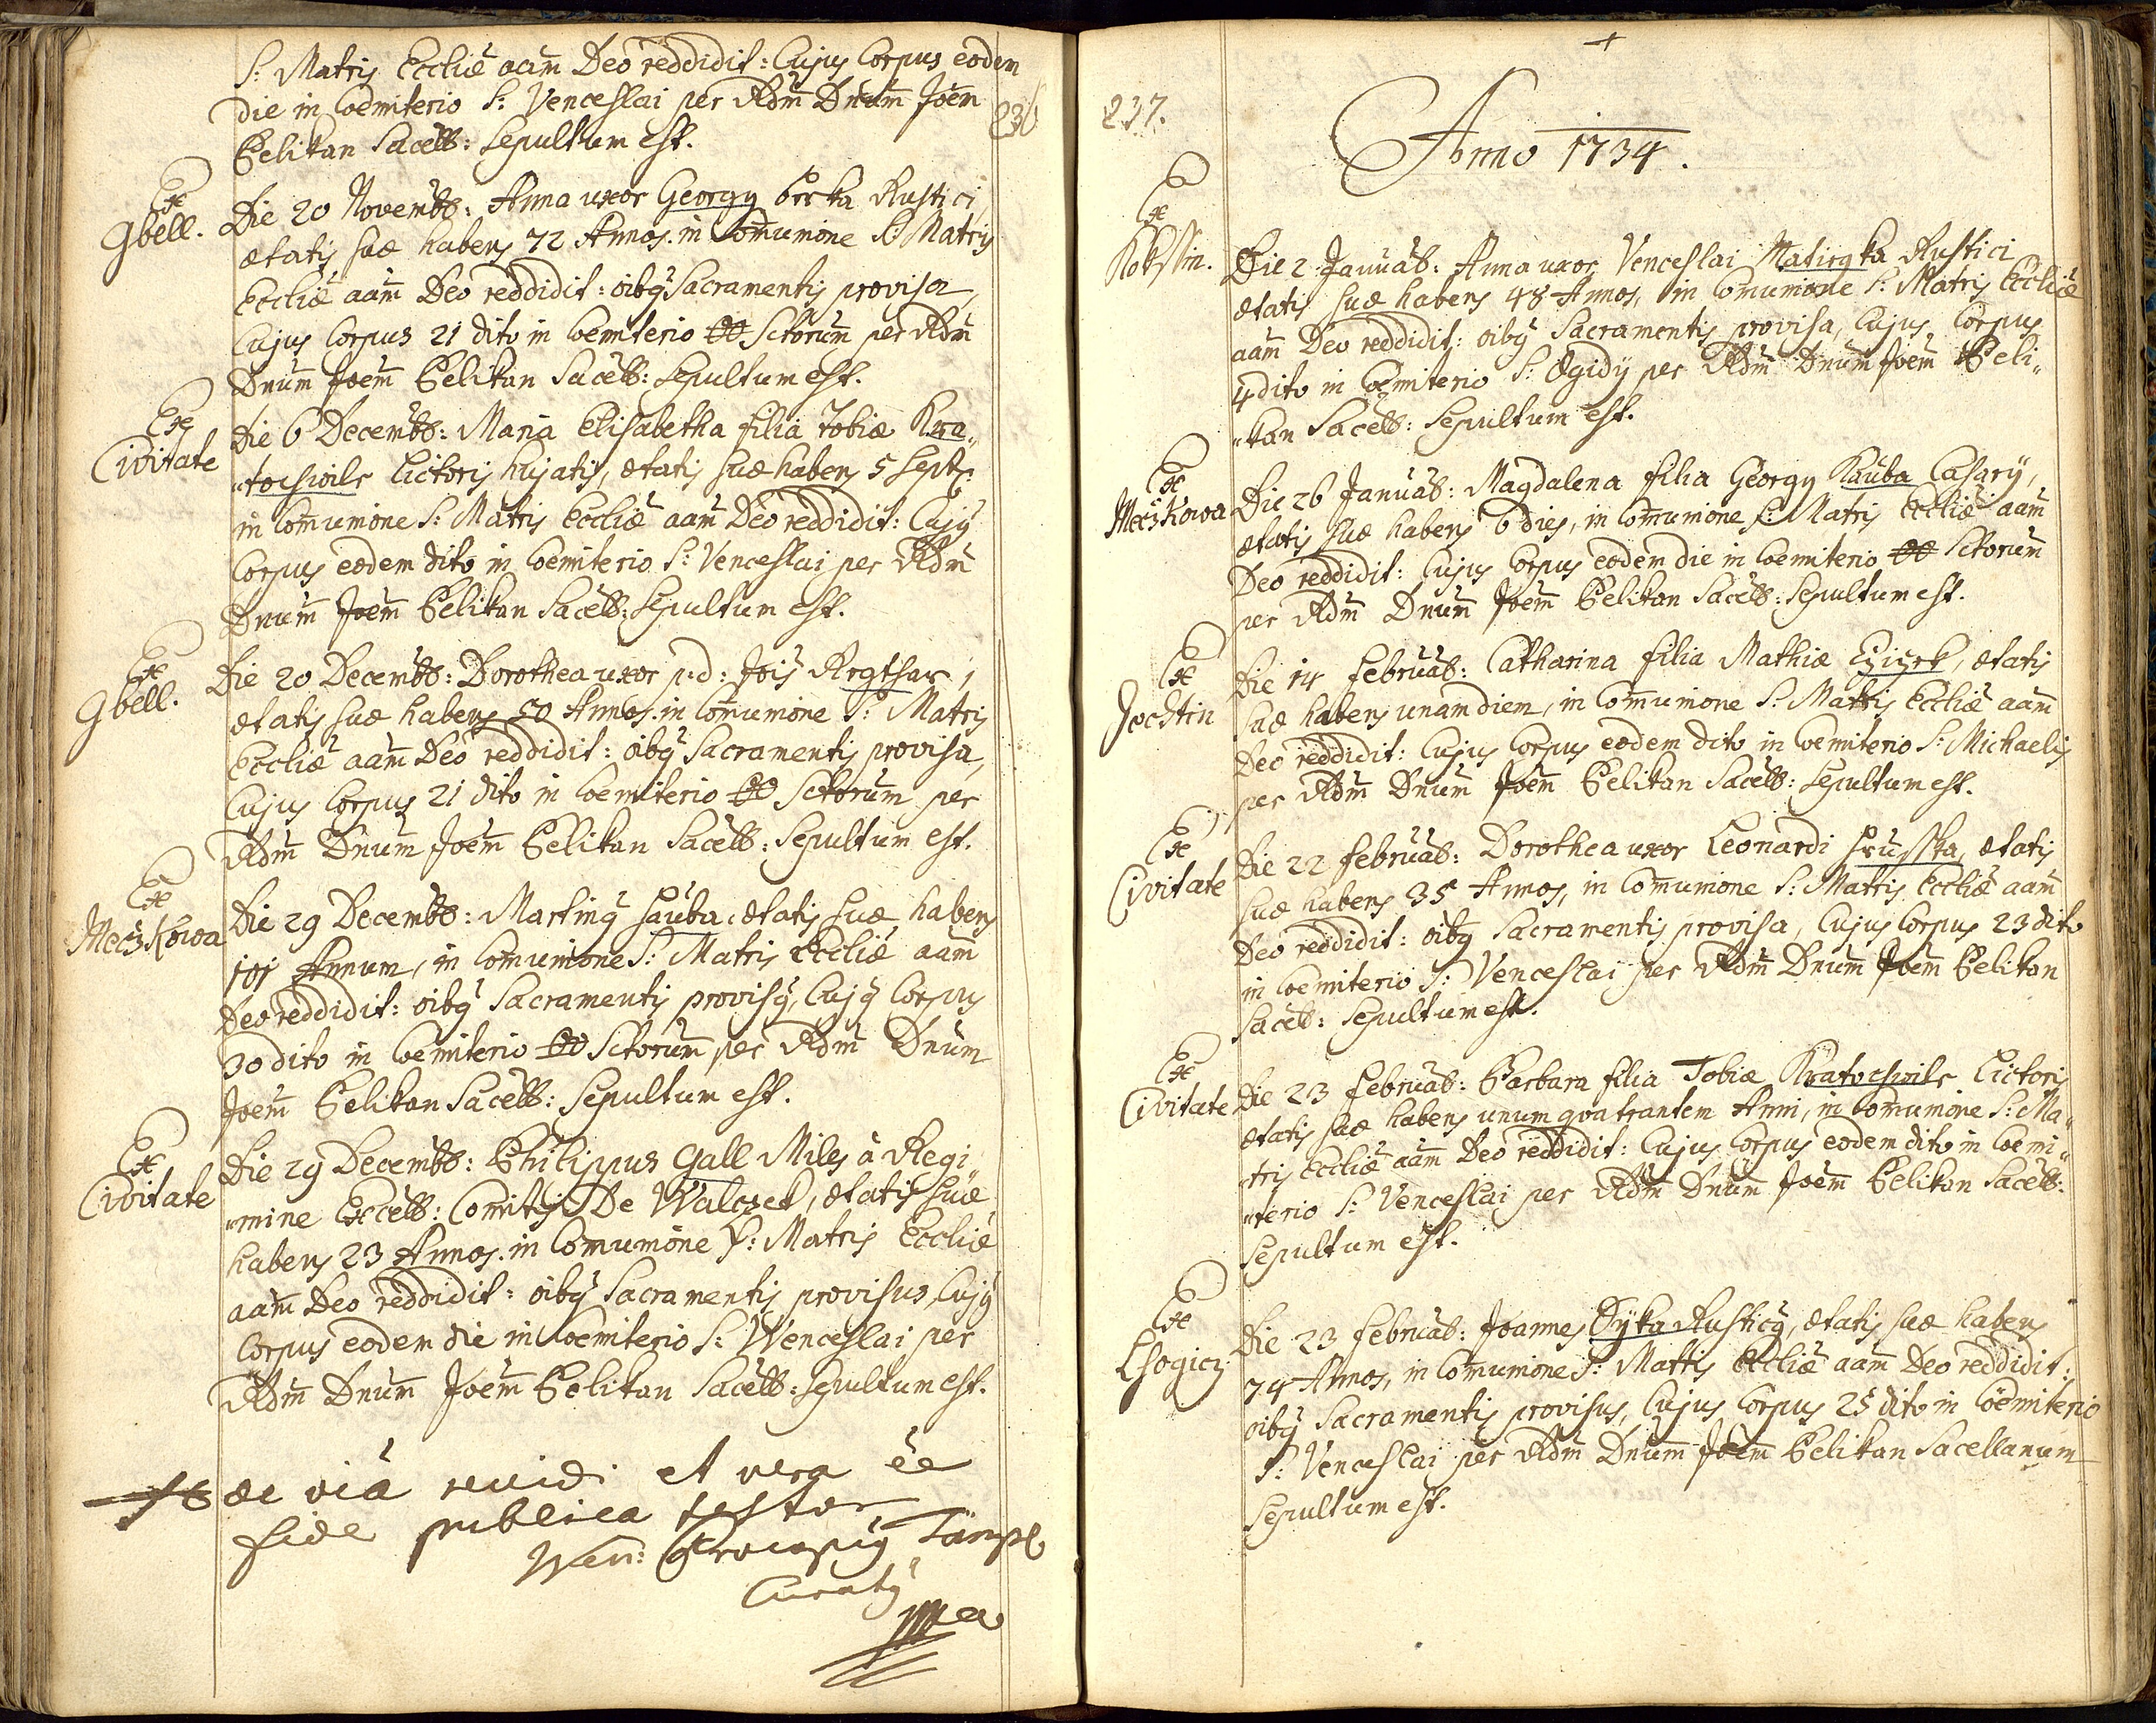 S: Matris Eccliæ aam Deo reddidit: Cujus Corpus eodem
die in Coemiterio S: Venceslai per Adm Dnum Joem
Pelikan Sacell: Sepultum est.
236
Ex
Gbell.
Die 20 Novemb: Anna uxor Georgy Brka Rustici,
ætatis suæ habens 72 Annos. in Comunione S: Matris
Eccliæ aam Deo reddidit: oibg Sacramentis provisa,
Cujus Corpus 21 dito in Coemiterio OO Sctorum per Adm
Dnum Joem Pelikan Sacell: Sepultum est.
Ex
Civitate
Die 6 Decemb: Maria Elisabetha filia Tobiæ Kra„
„tochwile Lictoris hujatis, ætatis suæ habens 5 Sept:
in Comunione S: Matris Eccliæ aam Deo reddidit: Cujg
Corpus eodem dito in Coemiterio S: Venceslai per Adm
Dnum Joem Pelikan Sacell: Sepultum est.
Ex
Gbell.
Die 20 Decemb: Dorothea uxor p: d: Jois Regthar,
ætatis suæ habens 50 Annos. in Comunione S: Matris
Eccliæ aam Deo reddidit: oibg Sacramentis provisa,
Cujus Corpus 21 dito in Coemiterio OO Sctorum per
Adm Dnum Joem Pelikan Sacell: Sepultum est.
Ex
Meczkowa
Die 29 Decemb: Marting Hauba, ætatis suæ habens
101 Annum, in Comunione S: Matris Eccliæ aam
Deo reddidit: oibg Sacramentis provisg, Cujg Corpus
30 dito in Coemiterio OO Sctorum per Adm Dnum
Joem Pelikan Sacell: Sepultum est.
Ex
Civitate
Die 29 Decemb: Philippus Gall Miles à Regi„
„mine Excell: Comitis De Walczek, ætatis suæ
habens 23 Annos. in Comunione S: Matris Eccliæ
aam Deo reddidit: oibg Sacramentis provisus, Cujg
Corpus eodem die in Coemiterio S: Wenceslai per
Adm Dnum Joem Pelikan Sacell: Sepultum est.
Hæc oia revidi et vera ee
fide publica testor
Wen:
Curatg
mpa
237.
Anno 1734.
Ex
Kokssin.
Die 2 Januab: Anna uxor Venceslai Matiegka Rustici
ætatis suæ habens 48 Annos, in Comunione S: Matris Eccliæ
aam Deo reddidit: oibg Sacramentis provisa, Cujus Corpus
4 dito in Coemiterio S: Ægidy per Adm Dnum Joem Peli„
„kan Sacell: Sepultum est.
Ex
Meczkowa
Die 26 Januab: Magdalena filia Georgy Kauba Casary,
ætatis suæ habens 6 dies, in Comunione S: Matris Eccliæ aam
Deo reddidit: Cujus Corpus eodem die in Coemiterio OO Sctorum
per Adm Dnum Joem Pelikan Sacell: Sepultum est.
Ex
Jochtin
Die 14 Februab: Catharina filia Mathiæ Cziczrk, ætatis
suæ habens unam diem, in Comunione S: Matris Eccliæ aam
Deo reddidit: Cujus Corpus eodem dito in Coemiterio S: Michaelis
per Adm Dnum Joem Pelikan Sacell: Sepultum est.
Ex
Civitate
Die 22 Februab: Dorothea uxor Leonardi Hrusska, ætatis
suæ habens 35 Annos, in Comunione S: Matris Eccliæ aam
Deo reddidit: oibg Sacramentis provisa, Cujus Corpus 23 dito
in Coemiterio S: Venceslai per Adm Dnum Joem Pelikan
Sacell: Sepultum est.
Ex
Civitate
Die 23 Februab: Barbara filia Tobiæ Kratochwile Lictoris
ætatis suæ habens unum qvatrantem Anni, in Comunione S: Ma„
„tris Eccliæ aam Deo reddidit: Cujus Corpus eodem dito in Coemi„
„terio S: Venceslai per Adm Dnum Joem Pelikan Sacell:
Sepultum est.
Ex
Lhogicz
Die 23 Februab: Joannes Dyka Rusticg, ætatis suæ habens
74 Annos, in Comunione S: Matris Eccliæ aam Deo reddidit:
oibg Sacramentis provisus, Cujus Corpus 25 dito in Coemiterio
S: Venceslai per Adm Dnum Joem Pelikan Sacellanum
Sepultum est.